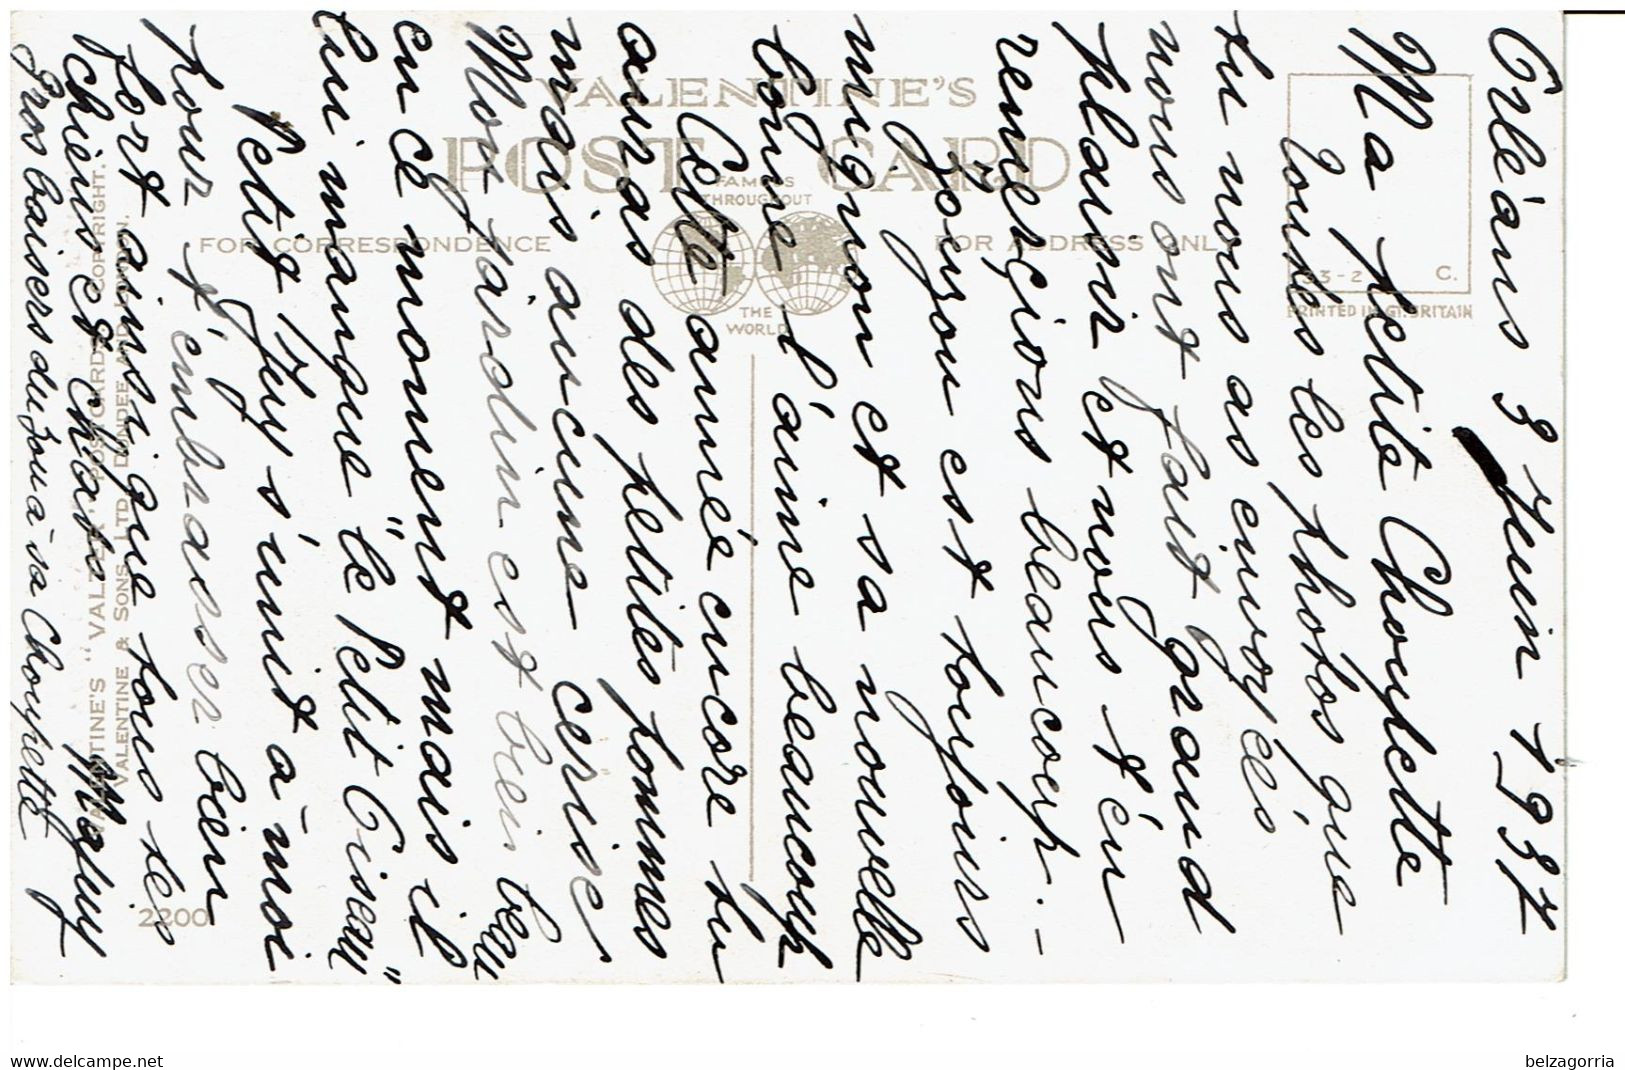 Orléans 3 Juin 1937
Ma petite Choupette
Toutes les photos que
tu nous as envoyés
nous ont fait grand
plaisir et nous t'en
remerçions beaucoup.-
Zouzou est toujours
mignon et sa nouvelle
bonne l'aime beaucoup
Cette année encore tu
auras des petites pommes
mais aucune cerise
Mon jardin est bien beau
en ce moment mais il
lui manque "le Petit Oiseau"
Petit Guy s'unit à moi
pour t'embrasser bien
fort ainsi que tous te
chiens et chats Maguy
Gros baisers du à sa Choupette
VALENTINE'S
POST CARD
FAMOUS
THROUGHOUT
THE
WORLD
FOR CORRESPONDENCE
FOR ADDRESS ONLY
33-2 C.
PRINTED IN GT. BRITAIN
VALENTINE'S "VALZER" POSTCARD. COPYRIGHT.
VALENTINE & SONS, LTD. DUNDEE AND LONDON.
2200
https://www.delcampe.net
belzagorria